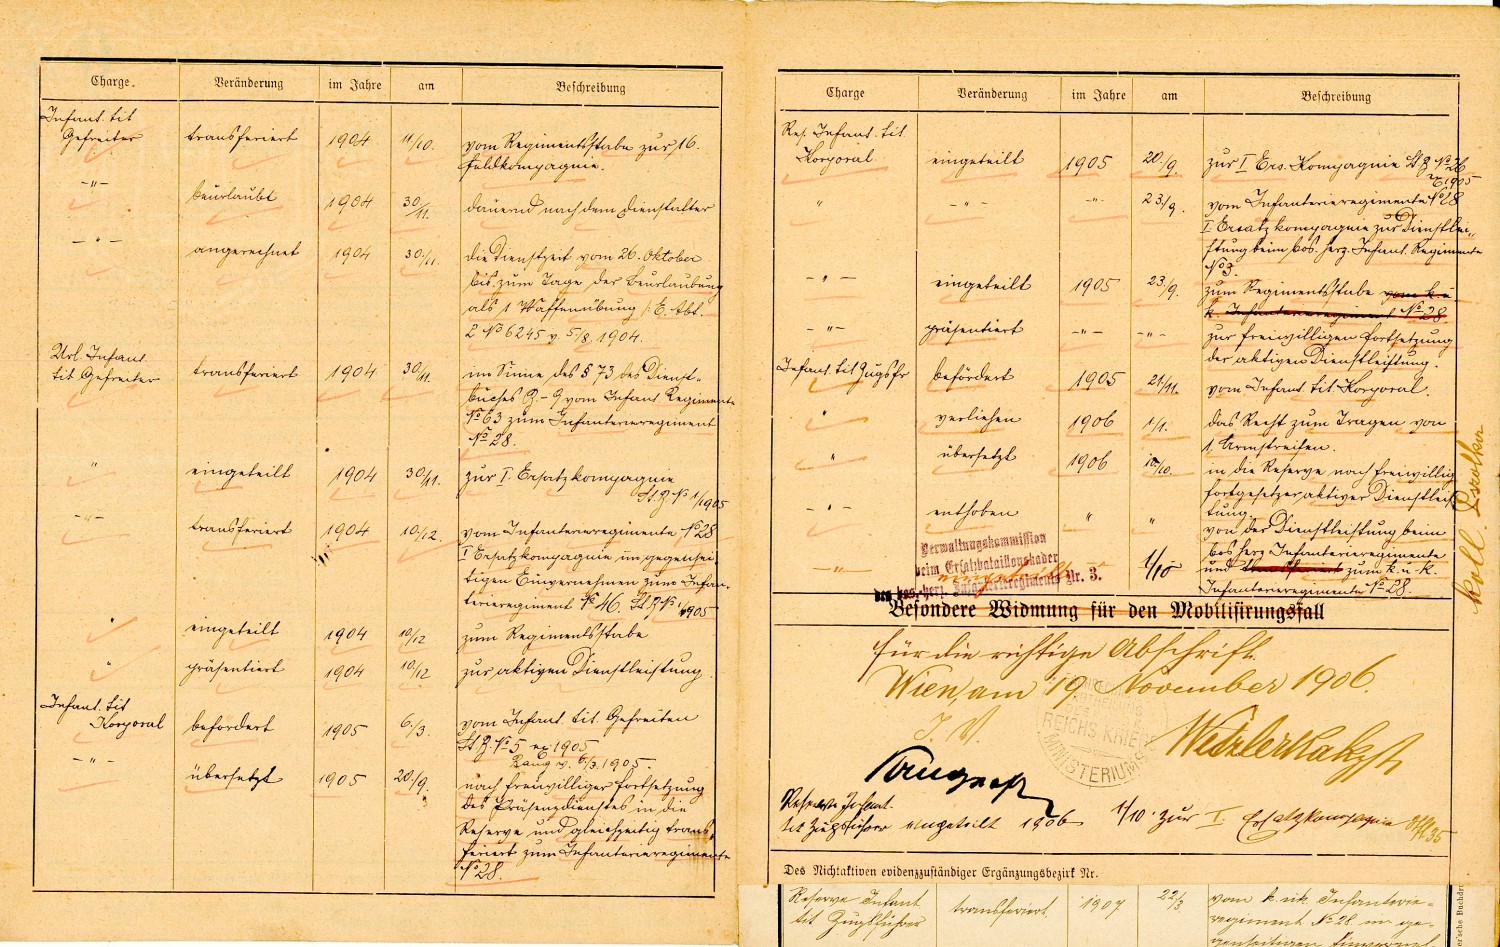 Charge. Veränderung im Jahre am Beschreibung
Infant. tit
Gefreiter transferiert 1904 11/10. vom Regimentsstabe zur 16.
Feldkompagnie.
-"- beurlaubt 1904 30/11. dauernd nach dem Dienstalter
-"- angerechnet 1904 30/11. die Dienstzeit vom 26. Oktober
bis zum Tage der Beurlaubung
als 1 Waffenübung /: E. Abt.
Z No 6245 v. 5/8. 1904.
Url. Infant.
tit Gefreiter transferiert 1904 30/11. im Sinne des § 73 des Dienst-
buches - 9 vom Infant. Regimente
No 63 zum Infanterieregiment
No 28.
" eingeteilt 1904 30/11. zur I. Ersatzkompagnie
St. B. No 1/1905
-"- transferiert 1904 10/12. vom Infanterieregimente No 28
I Ersatzkompagnie im gegensei-
tigen Einvernehmen zum Infan-
terieregiment No 46. St. B. No 1/1905
" eingeteilt 1904 10/12 zum Regimentsstabe
" präsentiert 1904 10/12 zur aktiven Dienstleistung.
Infant. tit
Korporal befördert 1905 6./3. vom Infant. tit. Gefreiten
St. B. No 5 ex 1905
Rang v. 6/3. 1905.
-"- übersetzt 1905 20./9. nach freiwilliger Fortsetzung
des Präsenzdienstes in die
Reserve und gleichzeitig trans-
feriert zum Infanterieregimente
No 28.
Charge Veränderung im Jahre am Beschreibung
Res. Infant. tit.
Korporal eingeteilt 1905 20/9. zur I Ers. Kompagnie St. B. No 26
ex 1905
" -"- -"- 23/9. vom Infanterieregimente No 28
I. Ersatzkompagnie zur Dienstlei-
stung beim bos. herz. Infant. Regimente
No 3.
-"- eingeteilt 1905 23/9. zum Regimentsstabe vom k. u.
k. Infanterieregiment No 28.
-"- präsentiert -"- -"- zur freiwilligen Fortsetzung
der aktiven Dienstleistung.
Infant. tit Zugsfr befördert 1905 21/11. vom Infant. tit. Korporal.
" verliehen 1906 1/1. das Recht zum Tragen von
1 Armstreifen.
" übersetzt 1906 10/10. in die Reserve nach freiwillig
fortgesetzter aktiver Dienstleis-
tung.
-"- enthoben " " von der Dienstleistung beim
bos. herz. Infanterieregimente
-"- 1/10 und transferiert zum k. u. k.
Infanterieregimente No 28.
Verwaltungskommission
beim Ersatzbataillonskader
des bos.-herz. Infanterieregiments Nr. 3.
Besondere Widmung für den Mobilisirungsfall
Für die richtige Abschrift.
Wien, am 19 November 1906.
I. V.
REICHS KRIEGS
MINISTERIUMS
Reserve Infant.
tit Zugsführer eingeteilt 1906 1/10. zur I. Ersatzkompagnie
Des Nichtaktiven evidenzzuständiger Ergänzungsbezirk Nr.
Reserve Infant
tit Zugsführer transferiert 1907 22/3 vom k. u. k. Infanterie-
regiment No 28 im ge-
genseitigen Einvernehm
koll.